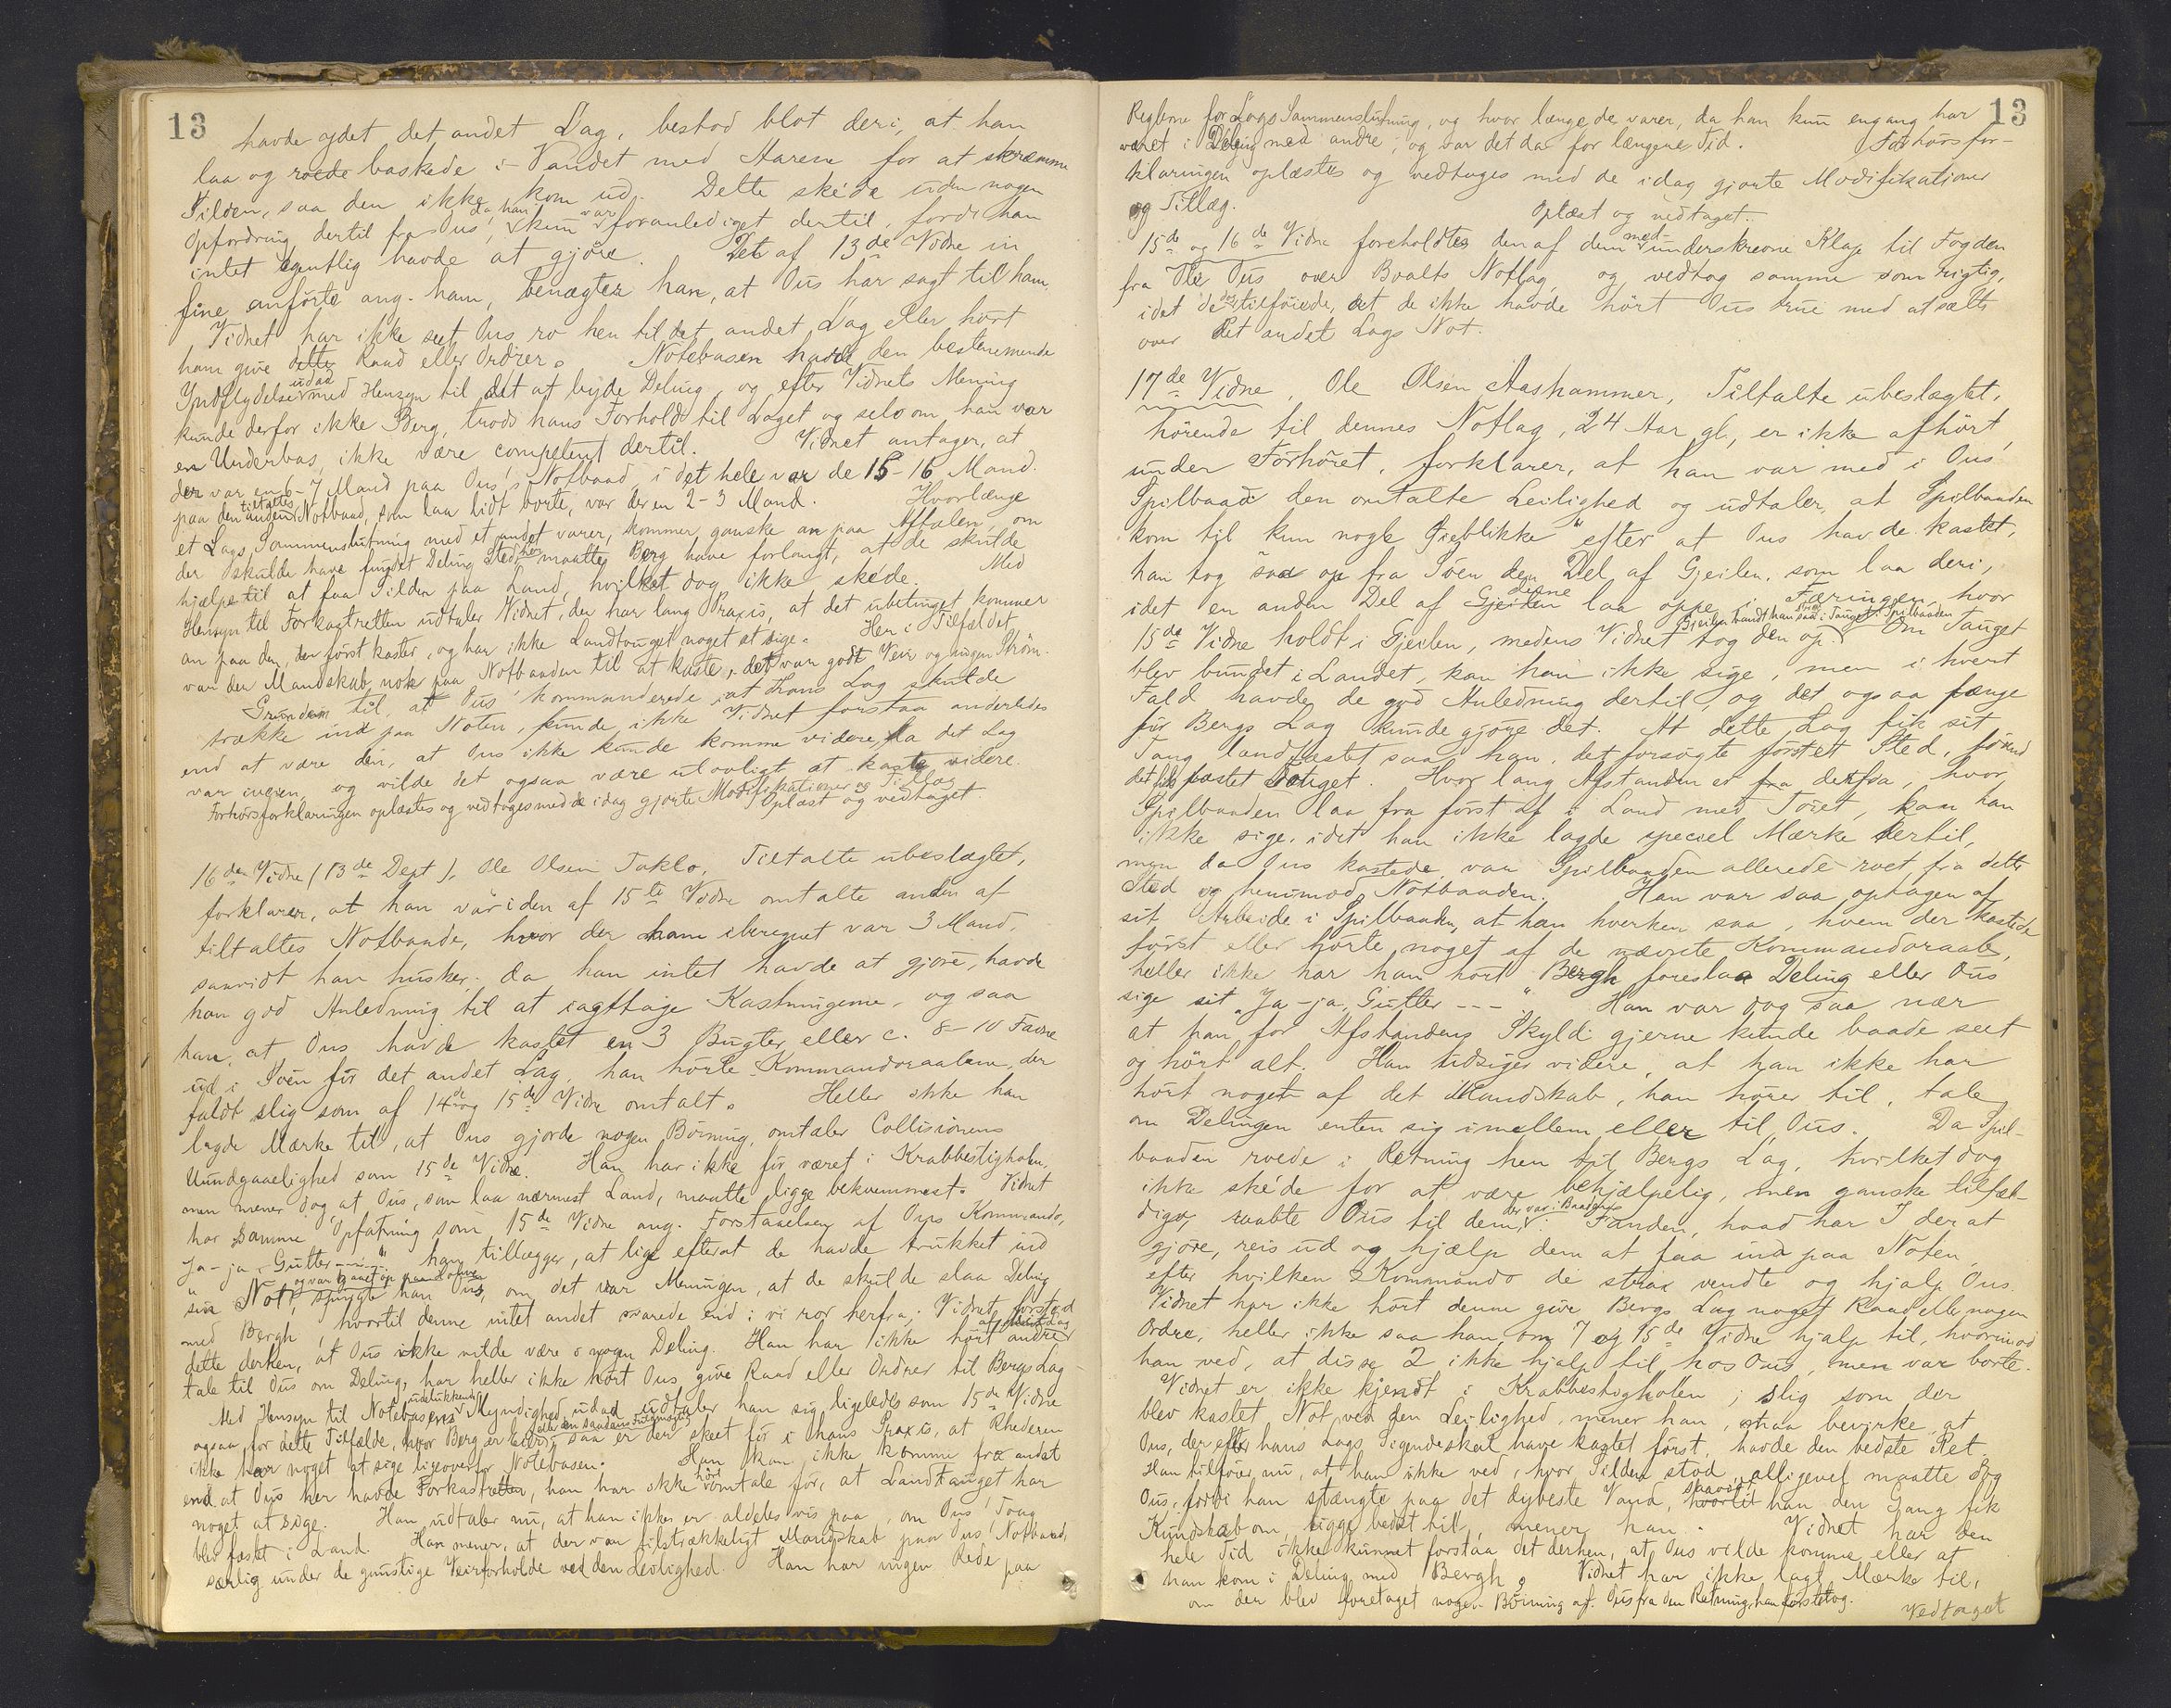 13
havde ydet det andet Lag, bestod blot deri, at han
laa og roede baskede i Vandet med Aarene for at skræmme
Silden, saa den ikke kom ud. Dette skede uden nogen
Opfordring dertil fra Ous, da han kun var foranlediget dertil, fordi han
intet egentlig havde at gjøre. Det af 13de Vidne in
fine anførte ang. ham, benægter han, at Ous har sagt til ham.
Vidnet har ikke seet Ous ro hen til det andet Lag eller hørt
ham give dette Raad eller Ordrer. Notebasen havde den bestemmende
Indflydelse udad med Hensyn til det at byde Deling, og efter Vidnets Mening
kunde derfor ikke Berg, trods hans Forhold til Laget og selv om han var
en Underbas, ikke være competent dertil. Vidnet antager, at
der var en 6-7 Mand paa Ous's Notbaad, i det hele var de 15-16 Mand.
paa den anden tiltaltes Notbaad, som laa lidt borte, var der en 2-3 Mand. Hvorlænge
et Lags Sammenslutning med et andet varer, kommer ganske an paa Aftalen, om
der skulde have fundet Deling Sted, her maatte Berg have forlangt, at de skulde
hjælpe til at faa Silden paa Land, hvilket dog ikke skede. Med
Hensyn til Forkastretten udtaler Vidnet, der har lang Praxis, at det ubetinget kommer
an paa den, der først kaster, og har ikke Landtouget noget at sige. Her i Tilfældet
var der Mandskab nok paa Notbaaden til at kaste, det var godt Veir og ingen Strøm.
Grunden til, at Ous' kommanderede at hans Lag skulde
trække ind paa Noten, kunde ikke Vidnet forstaa anderledes
end at være den, at Ous ikke kunde komme videre, da det Lag
var iveien, og vilde det ogsaa være ulovligt at kaste videre.
Forhørsforklaringen oplæstes og vedtoges med de idag gjorte Modifikationer og Tillæg
Oplæst og vedtaget
16de Vidne (13de Dept), Ole Olsen Taklo, Tiltalte ubeslægtet,
forklarer, at han var i den af 15te Vidne omtalte anden af
tiltaltes Notbaade, hvor der ham iberegnet var 3 Mand,
saavidt han husker; da han intet havde at gjøre, havde
han god Anledning til at iagttage Kastningerne, og saa
han, at Ous havde kastet en 3 Bugter eller c. 8-10 Favne
ud i Søen før det andet Lag, han hørte Kommandoraabene, der
faldt slig som af 14de og 15de Vidne omtalt. Heller ikke han
lagde Mærke til, at Ous gjorde nogen Bøining, omtaler Collisionens
Uundgaaelighed som 15de Vidne. Han har ikke før været i Krabbestigholen,
men mener dog, at Ous, som laa nærmest Land, maatte ligge bekvemmest. Vidnet
har samme Opfatning som 15de Vidne ang. Forstaaelsen af Ous Kommando,
"Ja-ja, Gutter ----" han tillægger, at lige efterat de havde trukket ind
sin Not, og var gaaet op paa Land spurgte han Ous, om det var Meningen, at de skulde slaa Deling
med Bergh hvortil denne intet andet svarede end: vi ror herfra; Vidnet forstod
dette derhen, at Ous ikke vilde være i nogen Deling. Han har ikke hørt andre af sit Lag
tale til Ous om Deling, har heller ikke hørt Ous give Raad eller Ordrer til Bergs Lag
Med Hensyn til Notebasens udelukkende Myndighed udad udtaler han sig ligeledes som 15de Vidne
ogsaa for dette Tilfælde, hvor Berg er Eier; saa er der skeet før i hans Praxis, at Rhederen
ikke har noget at sige ligeoverfor Notebasen. Han kan ikke komme fra andet
end at Ous her havde Forkastretten, han har ikke hørt omtale før, at Landtouget har
noget at sige. Han udtaler nu, at han ikke er aldeles vis paa, om Ous' Toug
blev fæstet i Land. Han mener, at der var tilstrækkeligt Mandskab paa Ous' Notbaad,
særlig under de gunstige Veirforholde ved den Leilighed. Han har ingen Rede paa
13
Reglerne for Lags Sammenslutning, og hvor længe de varer, da han kun engang har
været i Deling med andre, og var det da for længere Tid. Forhørsfor-
klaringen oplæstes og vedtoges med de idag gjorte Modifikationer
og Tillæg. Oplæst og vedtaget.
15de og 16de Vidne foreholdtes den af dem med-underskrevne Klage til Fogden
fra Ole Ous over Boalts Notlag, og vedtog samme som rigtig,
idet de dog tilføiede, at de ikke havde hørt Ous true med at sætte
over det andet Lags Not.
17de Vidne, Ole Olsen Aashammer, Tiltalte ubeslægtet,
hørende til dennes Notlag, 24 Aar gl, er ikke afhørt
under Forhøret, forklarer, at han var med i Ous'
Spilbaad den omtalte Leilighed og udtaler, at Spilbaaden
kom til kun nogle Øieblikke efter at Ous havde kastet,
han tog saa op fra Søen den Del af Gjeilen, som laa deri,
idet en anden Del af Gjeilen denne laa oppe i Færingen, hvor
15de Vidne holdt i Gjeilen, medens Vidnet tog den op. Gjeilen bandt han saa i Touget i Spilbaaden Om Touget
blev bundet i Landet, kan han ikke sige, men i hvert
Fald havde de god Anledning dertil, og det ogsaa længe
før Bergs Lag kunde gjøre det. At dette Lag fik sit
Toug landfæstet saa han, det forsøgte først et Sted, førend
det fik fæstet Touget. Hvor lang Afstanden er fra derfra, hvor
Spilbaaden laa fra først af i Land med Toiet, kan han
ikke sige, idet han ikke lagde speciel Mærke dertil,
men da Ous kastede, var Spilbaaden allerede roet fra dette
Sted og henimod Notbaaden. Han var saa optagen af
sit Arbeide i Spilbaaden, at han hverken saa, hvem der kastede
først eller hørte noget af de nævnte Kommandoraab,
heller ikke har han hørt Bergh foreslaa Deling eller Ous
sige sit "Ja-ja, Gutter ---" Han var dog saa nær
at han for Afstandens Skyld gjerne kunde baade seet
og hørt alt. Han udsiger videre, at han ikke har
hørt noget af det Mandskab, han hører til, tale
om Delingen enten sig imellem eller til Ous. Da Spil-
baaden roede i Retning hen til Bergs Lag, hvilket dog
ikke skede for at være behjælpelig, men ganske tilfæl-
digt, raabte Ous til dem, der var i Baaden: Fanden, hvad har I der at
gjøre, reis ud og hjælp dem at faa ind paa Noten,
efter hvilken Kommando de strax vendte og hjalp Ous.
Vidnet har ikke hørt denne give Bergs Lag noget Raad eller nogen
Ordre, heller ikke saa han, om 7 og 15de Vidne hjalp til, hvorimod
han ved, at disse 2 ikke hjalp til hos Ous, men var borte.
Vidnet er ikke kjendt i Krabbestigholen; slig som der
blev kastet Not ved den Leilighed, mener han, maa bevirke at
Ous, der efter hans Lags Sigende skal have kastet først, havde den bedste Ret.
Han tilføier nu, at han ikke ved, hvor Silden stod, alligevel maatte dog
Ous, fordi han stængte paa det dybeste Vand, saavidt han den Gang fik
Kundskab om, ligge bedst til, mener han. Vidnet har den
hele Tid ikke kunnet forstaa det derhen, at Ous vilde komme eller at
han kom i Deling med Bergh. Vidnet har ikke lagt Mærke til,
om der blev foretaget nogen Bøining af Ous fra den Retning, han først tog.
Vedtaget